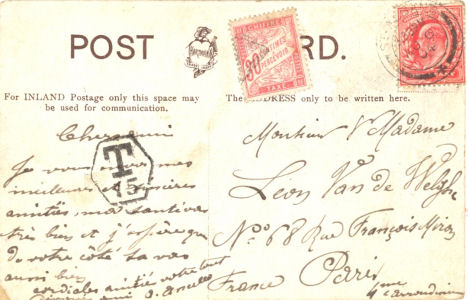 POST CARD.
CHIFFRE
30 CENTIMES
A PERCEVOIR
TAXE
For INLAND Postage only this space may
be used for communication.
The ADDRESS only to be written here.
T
15
Je vous
meilleurs et sincères
amitiés, ma santé va
très bien et j'espère que
de votre côté ça va
aussi bien
cordiales amitiés votre tout
ami
Monsieur & Madame
Leon Van de Velde
No 68 Rue François Miron
Paris
France
4me arrondissem